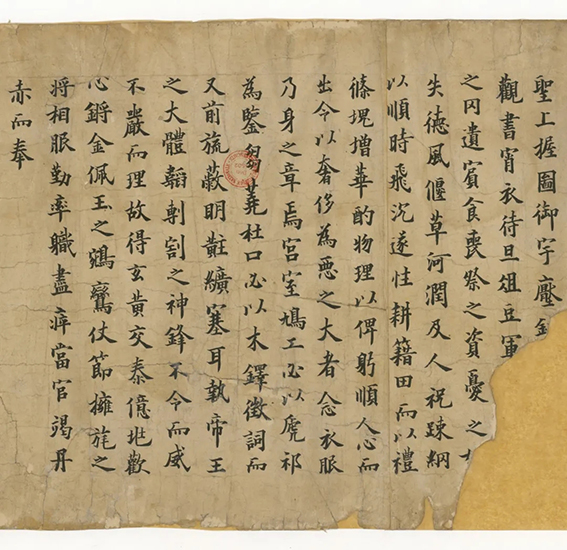 聖上握圖御宇壓
觀書宵衣待旦俎豆軍
之内遺賓食喪祭之資憂之
失德風偃草河潤及人祝踈網
以順時飛沉遂性耕籍田而以禮
塊增華酌物理以俾躬順人心而
出令以奢侈為惡之大者念衣服
乃身之章焉宮室鳩工必以虒祁
為鑒芻蕘杜口必以木鐸徵詞而
又前旒蔽明黈纊塞耳執帝王
之大體韜剸割之神鋒不令而威
不嚴而理故得玄黃交泰億兆歡
心鏘金佩玉之鵷鸞仗節擁旄之
將相服勤率職盡瘁當官竭丹
赤而奉